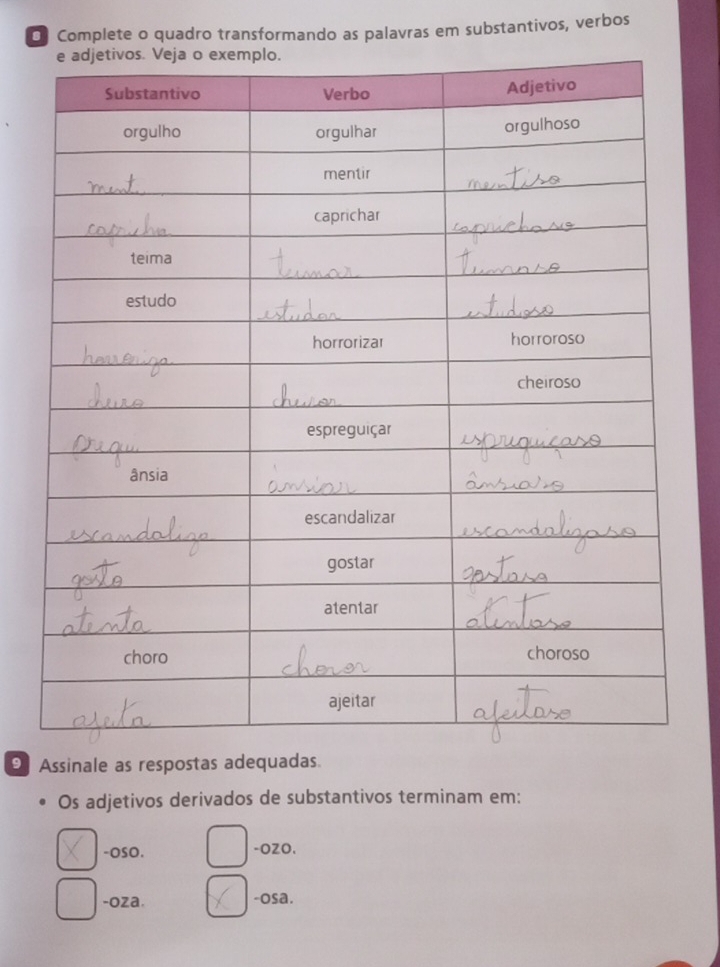 8 Complete o quadro transformando as palavras em substantivos, verbos
e adjetivos. Veja o exemplo.
Substantivo Verbo Adjetivo
orgulho orgulhar orgulhoso
ment mentir mentiso
capricha caprichar caprichoso
teima teimar teimoso
estudo estudar estudioso
horroriza horrorizar horroroso
cheiro cheirar cheiroso
pregu espreguiçar espreguiçoso
ânsia ânsiar ânsioso
escandaliza escandalizar escandalizoso
gosto gostar gostoso
atenta atentar atentoso
choro choror choroso
ajeita ajeitar ajeitoso
9 Assinale as respostas adequadas.
• Os adjetivos derivados de substantivos terminam em:
X -oso. -ozo.
-oza. X -osa.